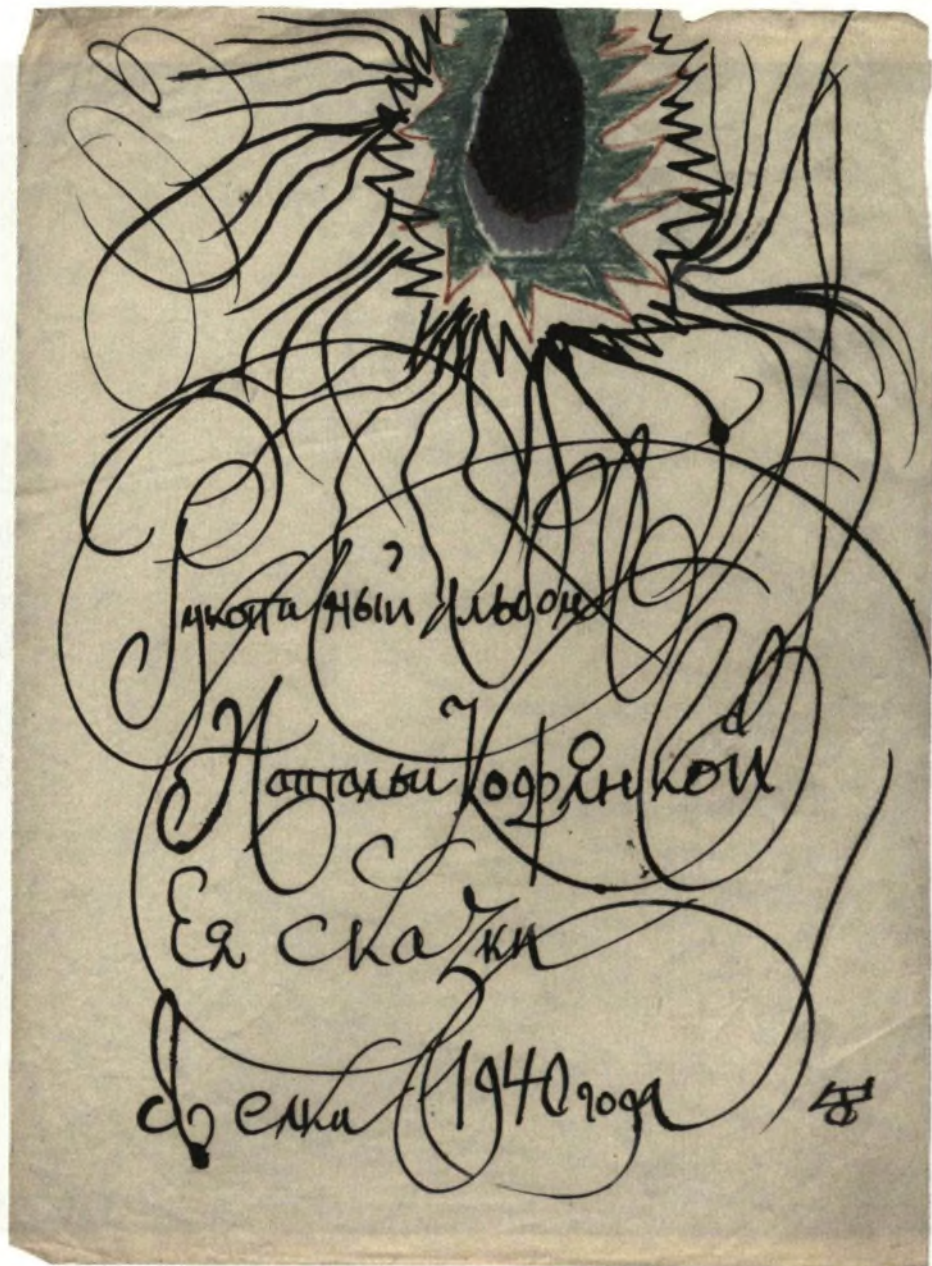 Рукописный Альбом
Натальи Кодрянской
Ея сказки
елка 1940 года